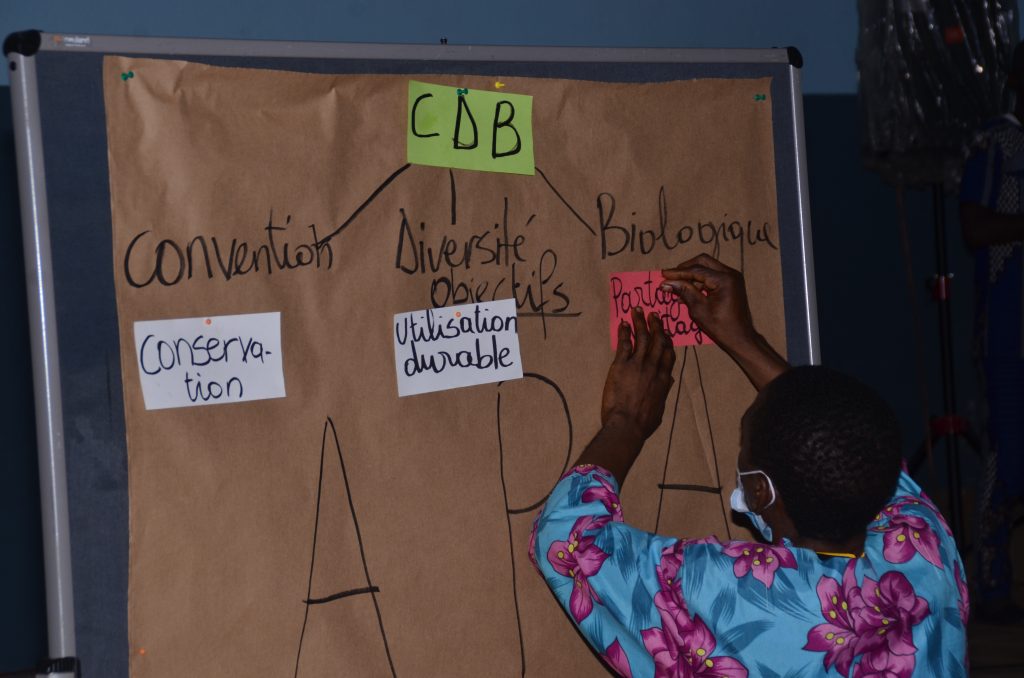 CDB
Convention Diversité Biologique
objectifs
Conserva-
tion
Utilisation
durable
A P A